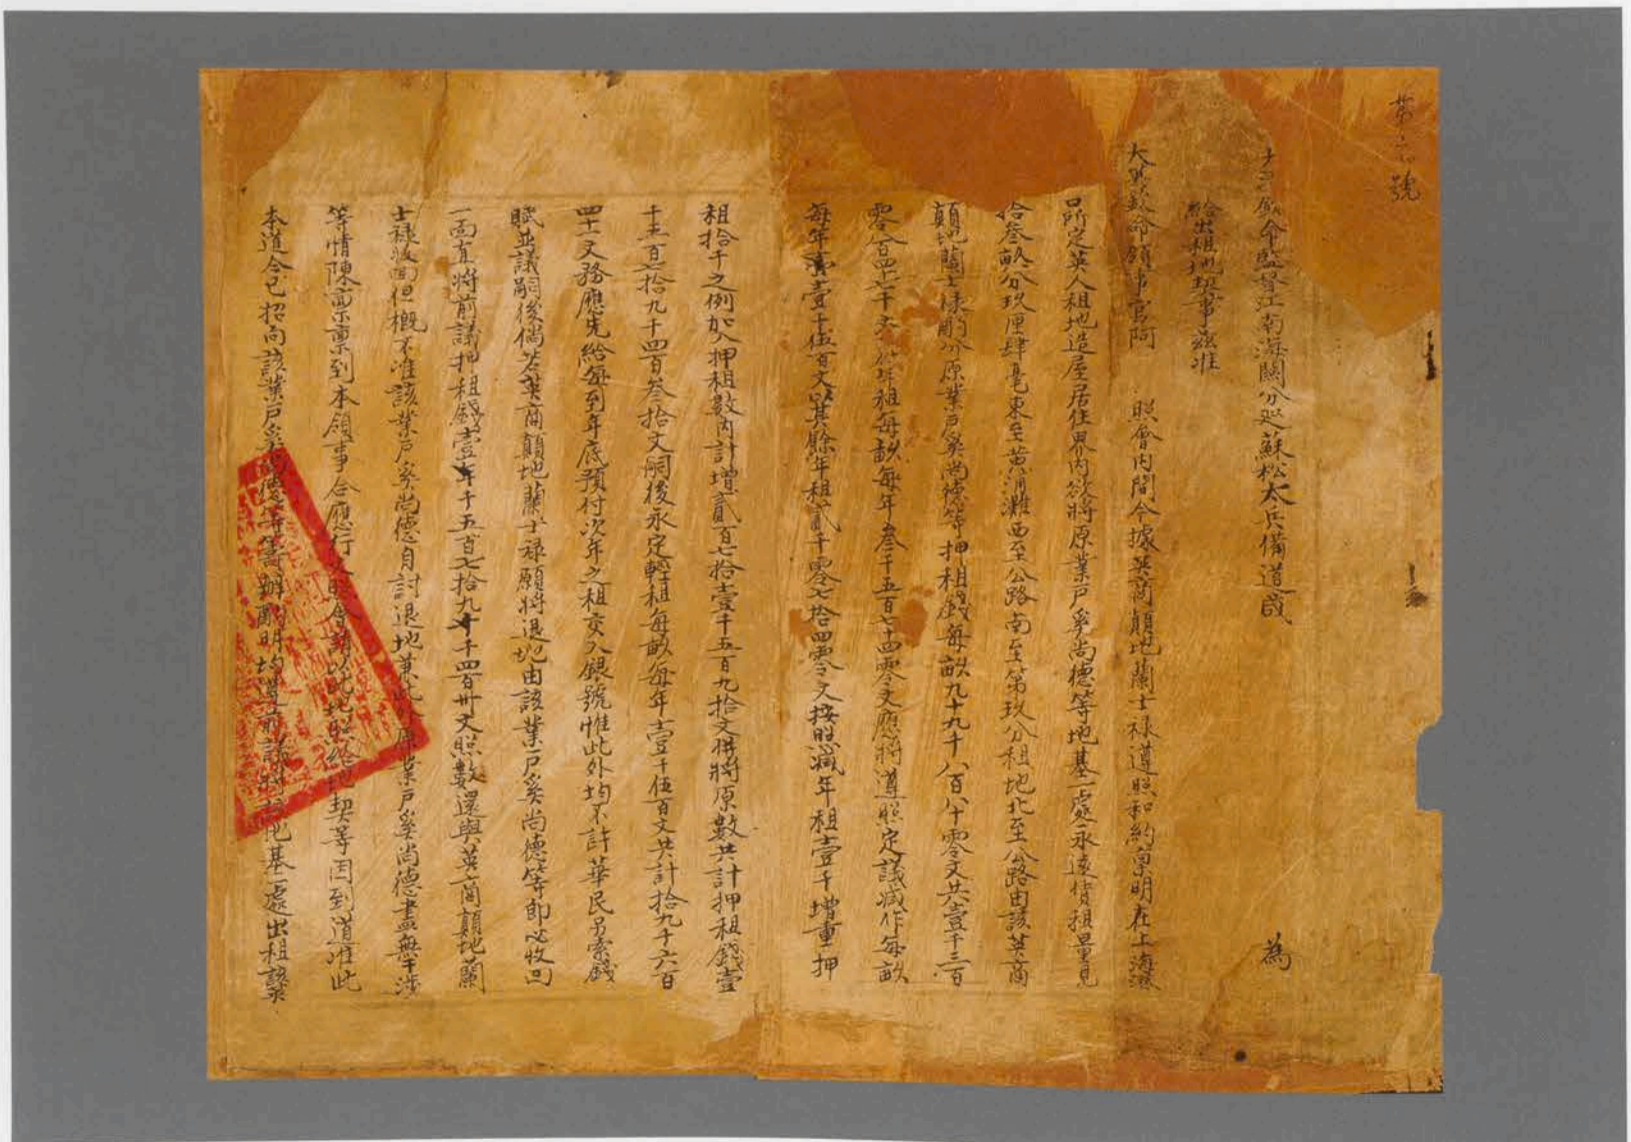 第六號
欽命監督江南海關分巡蘇松太兵備道咸 為
給出租地契事茲准
大英欽命領事官阿 照會內開今據英商顛地蘭士祿遵照和約稟明在上海港
口所定英人租地造屋居住界內欲將原業戶奚尚德等地基一處永遠借租量見
拾叁畝分玖厘肆毫東至黃浦灘西至公路南至第玖分租地北至公路由該英商
顛地蘭士祿酌分原業戶奚尚德等押租錢每畝九十九千八百八十零文共壹千三百
零八百四十七千文年租每畝每年叁千五百七十四零文應將遵照定議減作每畝
每年壹千伍百文其餘年租貳千零七拾四零文按照減年租壹千增重押
租拾千之例加入押租數內計增貳百七拾壹千五百九拾文將原數共計押租錢壹
千五百七拾九千四百叁拾文嗣後永定輕租每畝每年壹千伍百文共計拾九千六百
四十一文務應先給每到年底預付次年之租交入銀號惟此外均不許華民另索錢
賦並議嗣後倘若英商顛地蘭士祿願將退地由該業戶奚尚德等即必收回
一面直將前議押租錢壹千五百七拾九千四百卅文照數還與英商顛地蘭
士祿收回但概不准該業戶奚尚德自討退地業此原業戶奚尚德盡無干涉
等情陳稟稟到本領事合應行照會請以此照給地契等因到道准此
本道今已招向該業戶奚尚德等籌辦酌明均遵前議將該地基一處出租該英